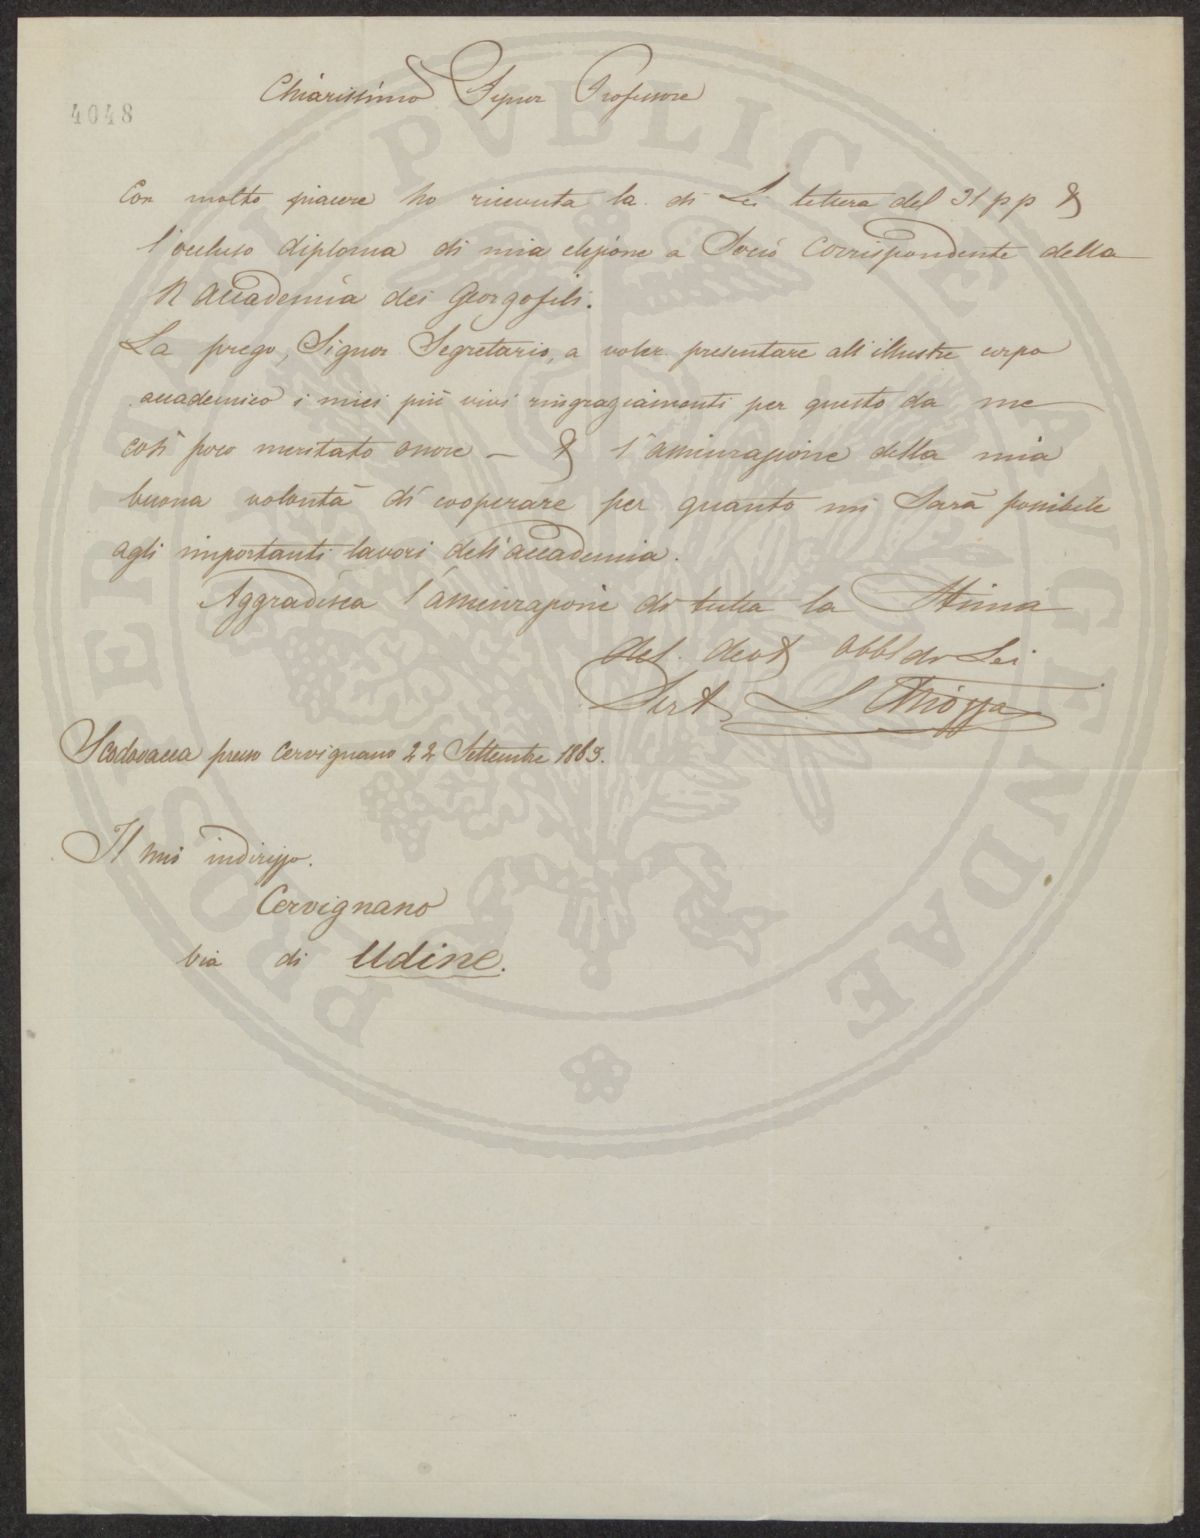 4048
Chiarissimo Signor Professore
Con molto piacere ho ricevuta la di Lei lettera del 31 pp &
l'occluso diploma di mia elezione a Socio Corrispondente della
R Accademia dei Georgofili.
La prego, Signor Segretario, a voler presentare all'illustre corpo
accademico i miei più vivi ringraziamenti per questo da me
così poco meritato onore — & l'assicurazione della mia
buona volontà di cooperare per quanto mi sarà possibile
agli importanti lavori dell'accademia.
Aggradisca l'assicurazione di tutta la Stima
del devot obbl di Lei
L Chiozza
Scodovacca presso Cervignano 22 Settembre 1869.
Il mio indirizzo.
Cervignano
via di Udine.
PROSPERITATI PVBLICAE AVGENDAE